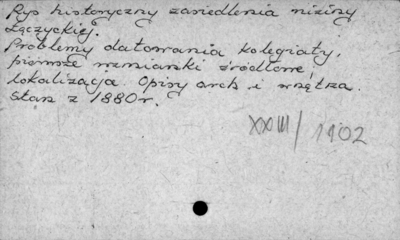 Rys historyczny zasiedlenia niziny
Łęczyckiej.
Problemy datowania kolegiaty,
pierwsze wzmianki źródłowe,
lokalizacja. Opisy arch i wnętrza.
Stan z 1880 r.
XXIII/1902